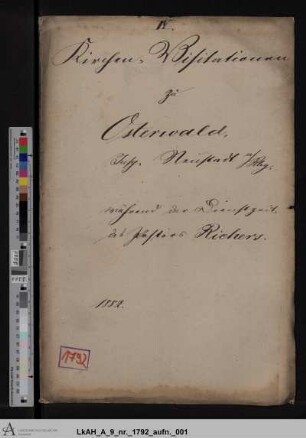 IV.
Kirchen-Visitationen
zu
Osterwald,
Insp. Neustadt a/Rbg.
während der Dienstzeit
des Pastors Richers.
1852.
1792
LkAH_A_9_nr._1792_aufn._001